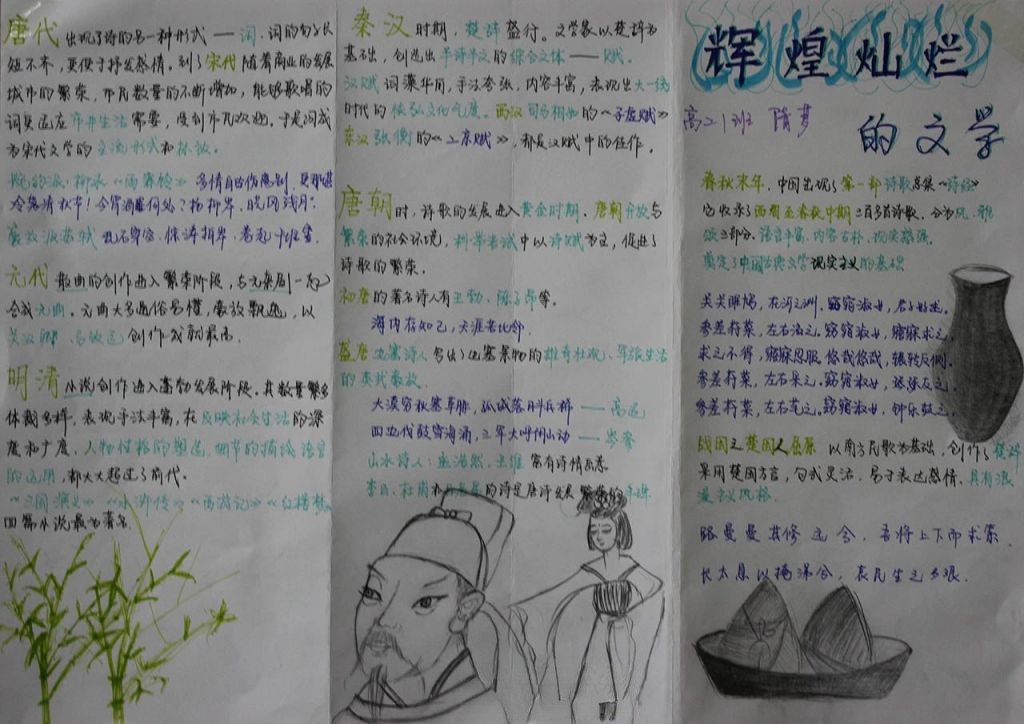 辉煌灿烂
的文学
高二1班 隋梦
春秋末年,中国出现了第一部诗歌总集《诗经》
它收录了西周至春秋中期三百多首诗歌。分为风、雅、
颂三部分。语言丰富、内容古朴、现实感强。
奠定了中国古典文学现实主义的基础
关关雎鸠,在河之洲。窈窕淑女,君子好逑。
参差荇菜,左右流之。窈窕淑女,寤寐求之。
求之不得,寤寐思服。悠哉悠哉,辗转反侧。
参差荇菜,左右采之。窈窕淑女,琴瑟友之。
参差荇菜,左右芼之。窈窕淑女,钟乐鼓之。
战国之楚国人屈原 以南方民歌为基础,创作了楚辞
采用楚国方言,句式灵活、易于表达感情、具有浪
漫主义风格
路曼曼其修远兮,吾将上下而求索.
长太息以掩涕兮,哀民生之多艰.
秦汉时期,楚辞盛行。文学家以楚辞为
基础,创造出半诗半文的综合文体——赋.
汉赋词藻华丽,手法夸张,内容丰富,表现出大一统
时代的恢弘文化气度。西汉司马相如的《子虚赋》
东汉张衡的《二京赋》,都是汉赋中的佳作。
唐朝时,诗歌的发展进入黄金时期、唐朝开放与
繁荣的社会环境,科举考试中以诗赋为主,促进了
诗歌的繁荣。
初唐的著名诗人有王勃、陈子昂等。
海内存知己,天涯若比邻.
盛唐边塞诗人多写了边塞景物的雄奇壮观、军旅生活
的英武豪放.
大漠穷秋塞草腓,孤城落日斗兵稀——高适
四边伐鼓雪海涌,三军大呼阴山动——岑参
山水诗人:孟浩然、王维富有诗情画意
李白、杜甫和的诗是唐诗发展繁荣的
唐代出现了诗的另一种形式——词,词的句子长
短不齐,更便于抒发感情。到了宋代随着商业的发展
城市的繁荣,市民数量的不断增加,能够歌唱的
词更适应市井生活需要,受到市民欢迎。于是词成
为宋代文学的主流形式和标致。
婉约派:柳永《雨霖铃》多情自古伤离别,更那堪
冷落清秋节!今宵酒醒何处?杨柳岸,晓风残月.
豪放派苏轼 乱石穿空,惊涛拍岸,卷起千堆雪.
元代 散曲的创作进入繁荣阶段,与元杂剧一起
合成元曲。元曲大多通俗易懂,豪放飘逸,以
关汉卿、马致远创作成就最高.
明清小说创作进入蓬勃发展阶段。其数量繁多
体裁多样,表现手法丰富,在反映社会生活的深
度和广度、人物性格的塑造、细节的描绘语言
的运用,都大大超过了前代。
《三国演义》《水浒传》《西游记》《红楼梦》
四篇小说最为著名